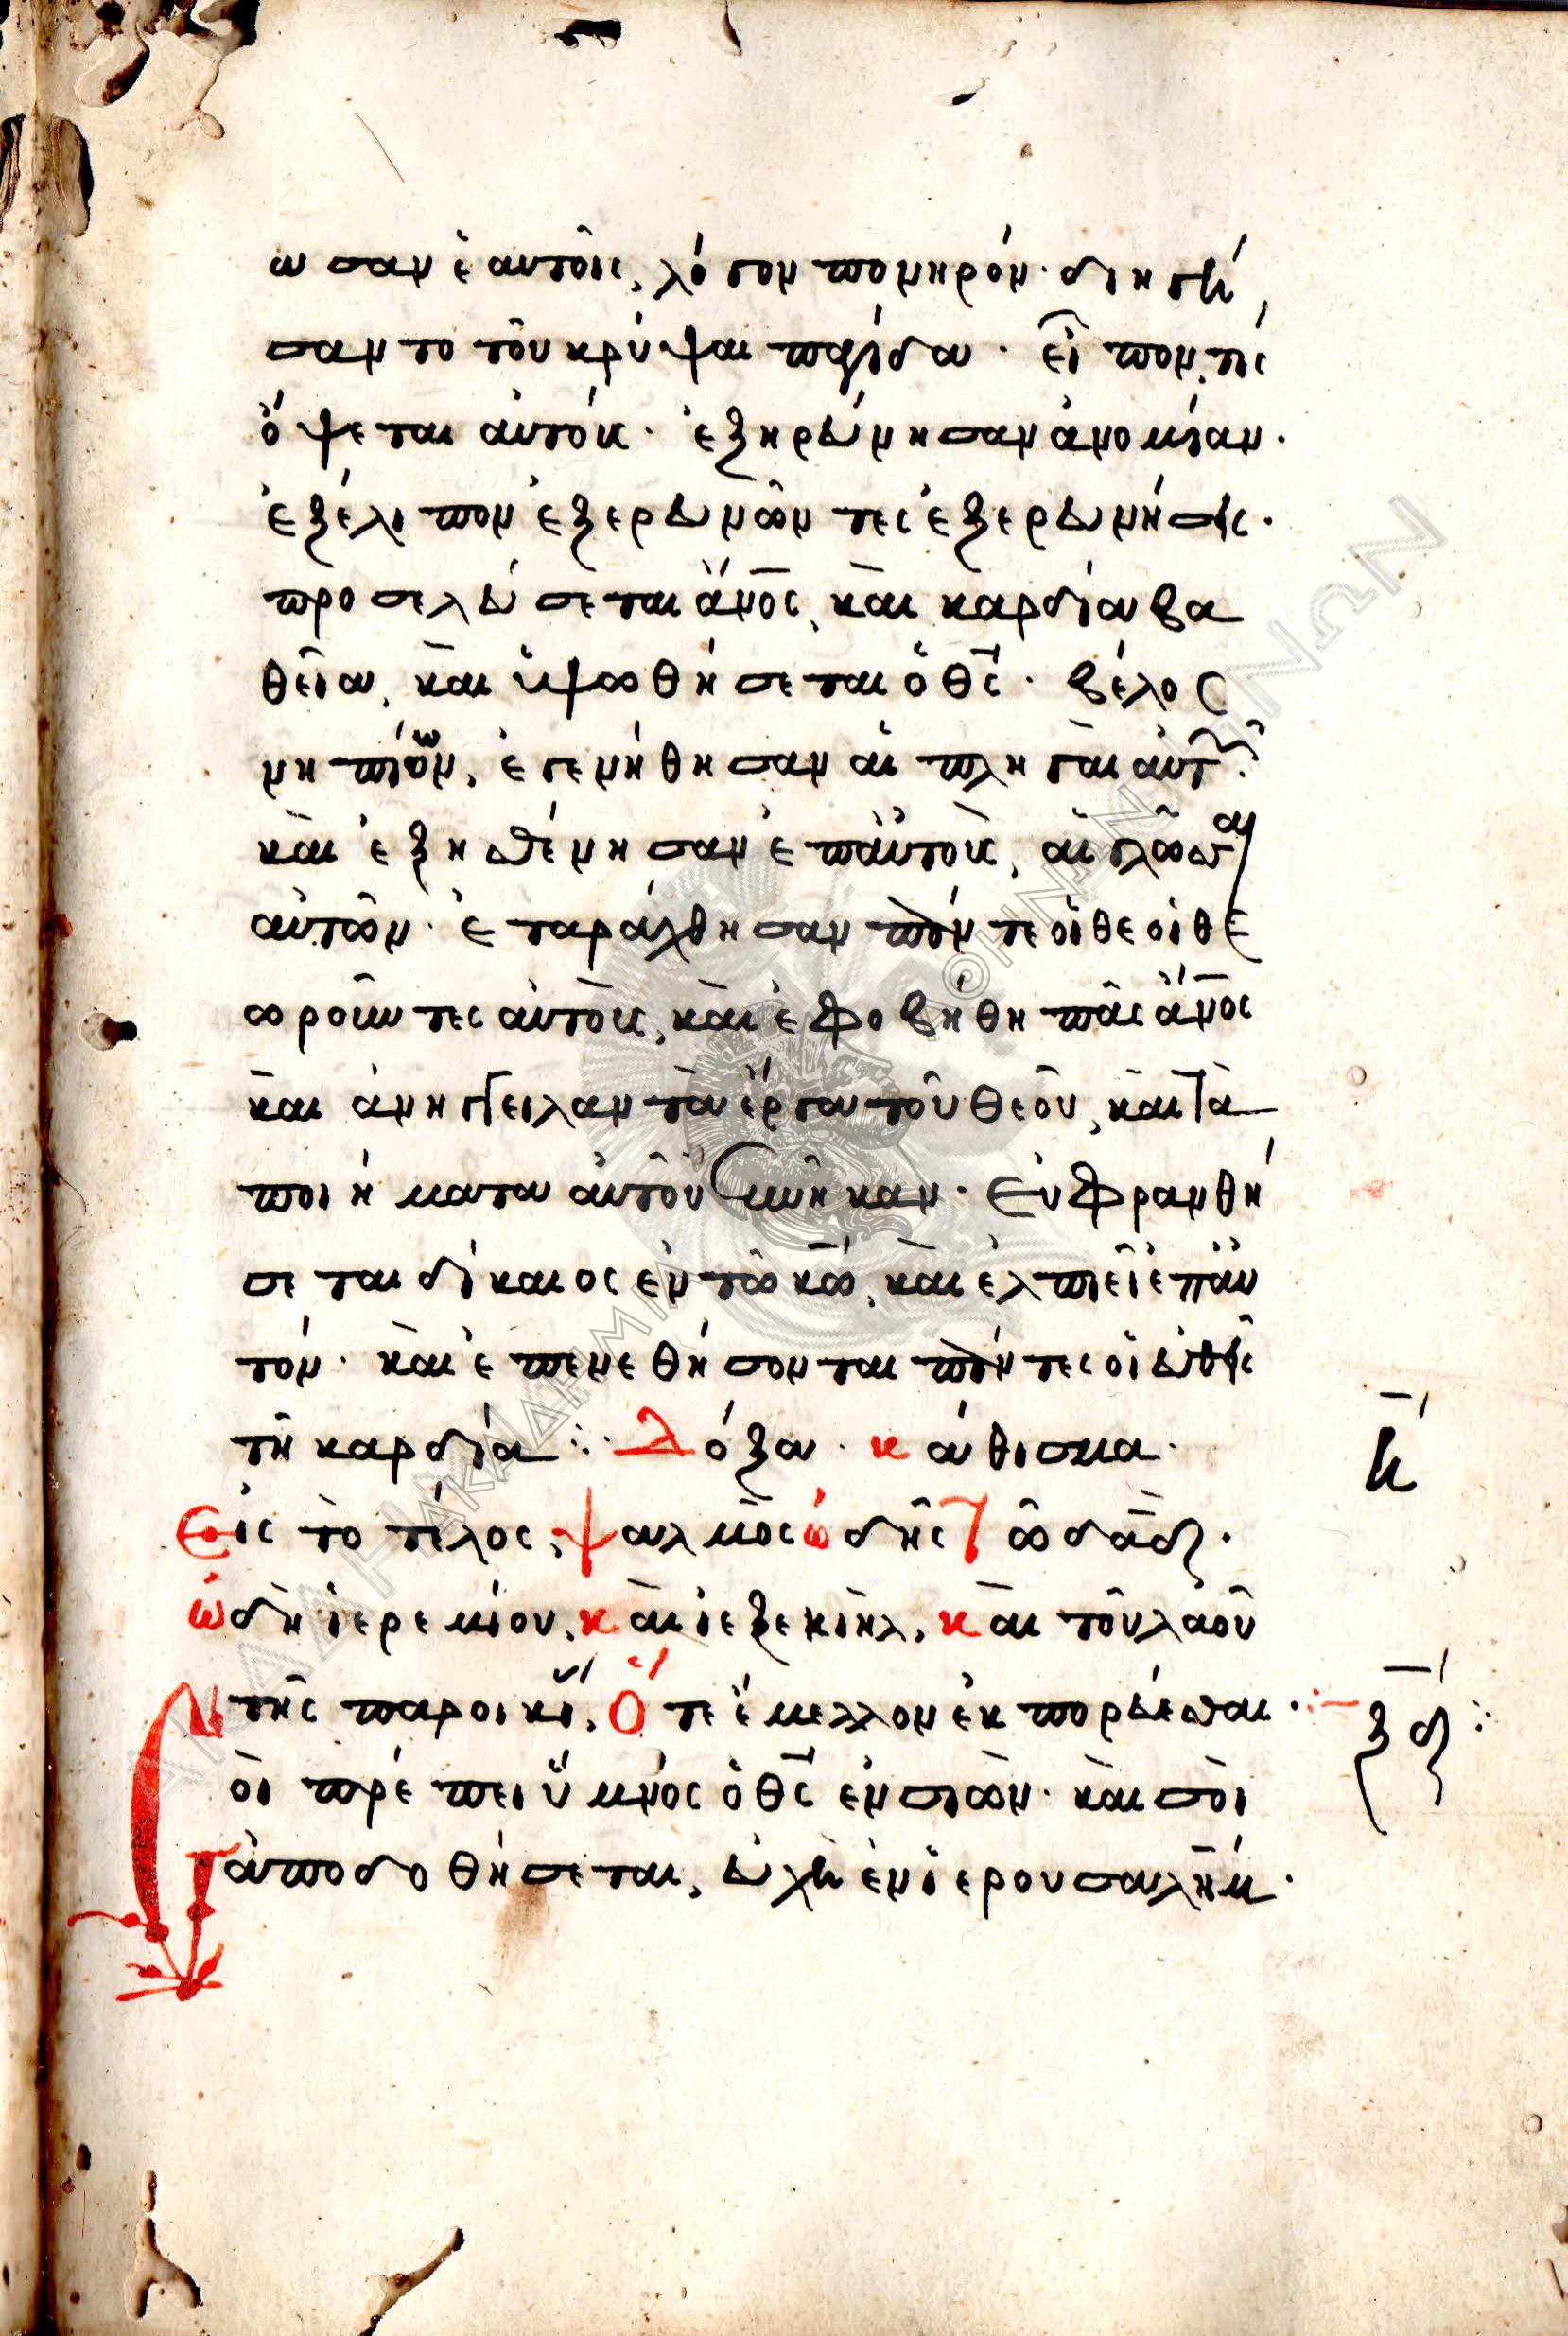 ωσαν ἑαυτοῖς, λόγον πονηρόν· διηγή
σαντο τοῦ κρύψαι παγίδα· εἶπον, τίς
ὄψεται αὐτούς· ἐξηρεύνησαν ἀνομίαν·
ἐξέλιπον ἐξερευνῶντες ἐξερευνήσεις·
προσελεύσεται ἄνος, καὶ καρδία βα
θεῖα, καὶ ὑψωθήσεται ὁ θς· βέλος
νηπίων, ἐγενήθησαν αἱ πληγαὶ αὐτῶν·
καὶ ἐξησθένησαν ἐπ αὐτοὺς, αἱ γλῶσσαι
αὐτῶν· ἐταράχθησαν πάντες οἱ θεοιθε
ωροῦντες αὐτοὺς, καὶ ἐφοβήθη πᾶς ἄνος
καὶ ἀνήγγειλαν τὰ ἔργα τοῦ θεοῦ, καὶ τὰ
ποιήματα αὐτοῦ συνῆκαν· Εὐφρανθή
σεται δίκαιος ἐν τῶ κω, καὶ ἐλπιεῖ ἐπ αυ
τόν· καὶ ἐπενεθήσονται πάντες οἱ εὐθεῖς
τῆ καρδία ⁘ Δόξα· κάθισμα·
Εἰς τὸ τέλος, ψαλμὸς ὠδῆς τῶ δαδ·
ὠδὴ ἱερεμίου, καὶ ἰεζεκιὴλ, καὶ τοῦ λαοῦ
τῆς παροικί, Ὅτε ἔμελλον ἐκπορεύεσθαι·
Σοὶ πρέπει ὕμνος ὁ θς ἐν σιὼν· καὶ σοὶ
ἀποδοθήσεται, εὐχὴ ἐν ἱερουσαλήμ·
ξδ